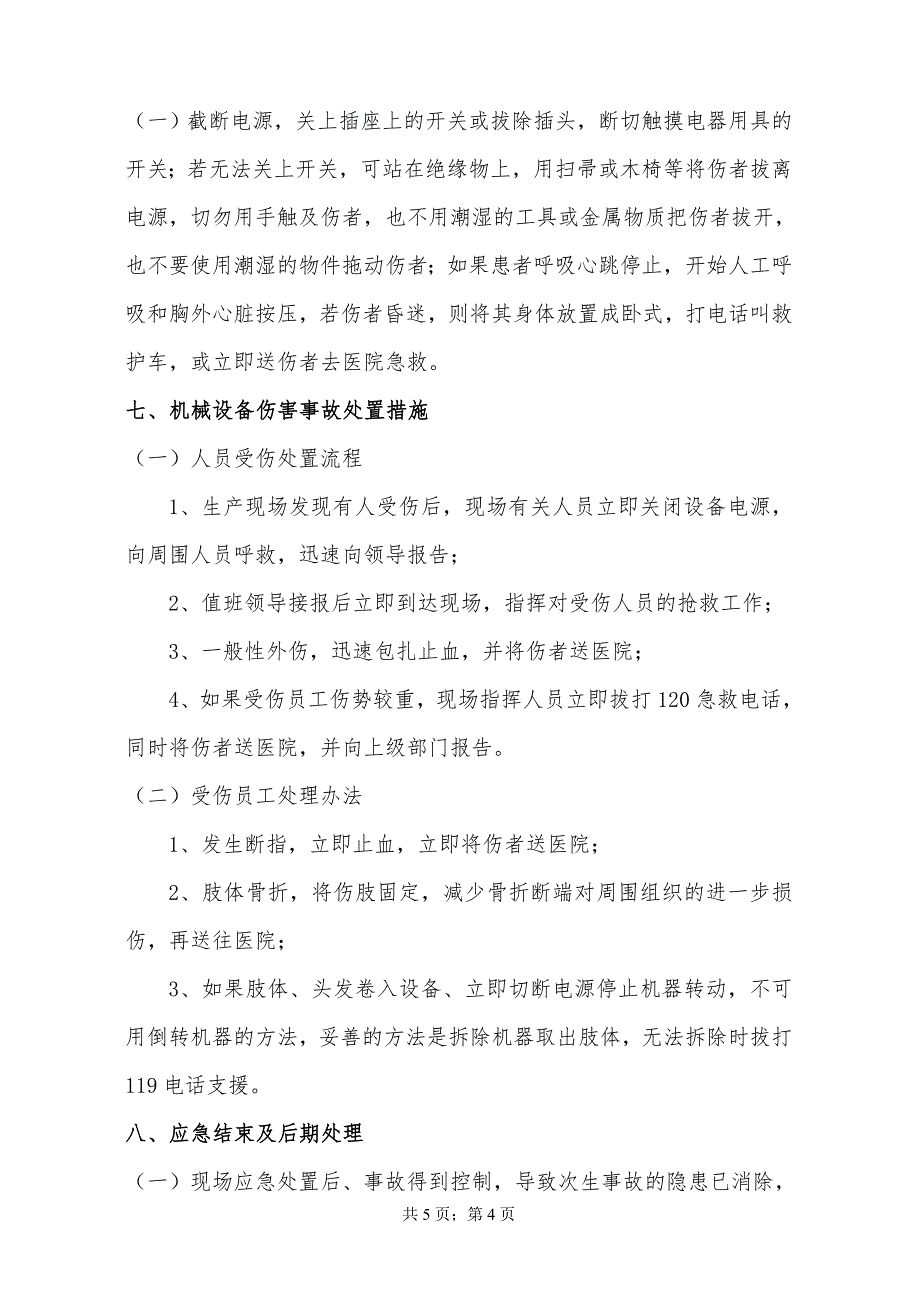 （一）截断电源，关上插座上的开关或拔除插头，断切触摸电器用具的
开关；若无法关上开关，可站在绝缘物上，用扫帚或木椅等将伤者拔离
电源，切勿用手触及伤者，也不用潮湿的工具或金属物质把伤者拔开，
也不要使用潮湿的物件拖动伤者；如果患者呼吸心跳停止，开始人工呼
吸和胸外心脏按压，若伤者昏迷，则将其身体放置成卧式，打电话叫救
护车，或立即送伤者去医院急救。
七、机械设备伤害事故处置措施
（一）人员受伤处置流程
1、生产现场发现有人受伤后，现场有关人员立即关闭设备电源，
向周围人员呼救，迅速向领导报告；
2、值班领导接报后立即到达现场，指挥对受伤人员的抢救工作；
3、一般性外伤，迅速包扎止血，并将伤者送医院；
4、如果受伤员工伤势较重，现场指挥人员立即拔打 120 急救电话，
同时将伤者送医院，并向上级部门报告。
（二）受伤员工处理办法
1、发生断指，立即止血，立即将伤者送医院；
2、肢体骨折，将伤肢固定，减少骨折断端对周围组织的进一步损
伤，再送往医院；
3、如果肢体、头发卷入设备、立即切断电源停止机器转动，不可
用倒转机器的方法，妥善的方法是拆除机器取出肢体，无法拆除时拔打
119 电话支援。
八、应急结束及后期处理
（一）现场应急处置后、事故得到控制，导致次生事故的隐患已消除，
共 5 页；第 4 页